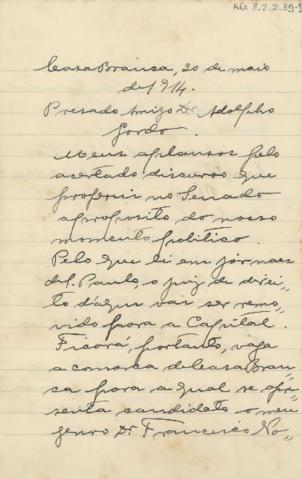 AG 3.2.2.39-1
Casa Branca, 20 de maio
de 1914.
Presado Amigo Dr. Adolpho
Gordo.
Meus aplausos pelo
acertado discurso que
proferiu no Senado
aproposito do nosso
momento politico.
Pelo que li em jornaes
de S. Paulo, o juiz de direi„
to d'aqui vai ser remo„
vido para a Capital.
Ficará, portanto, vaga
a comarca de Casa Bran„
ca para a qual se apre„
senta candidato o meu
genro Dr. Francisco No„